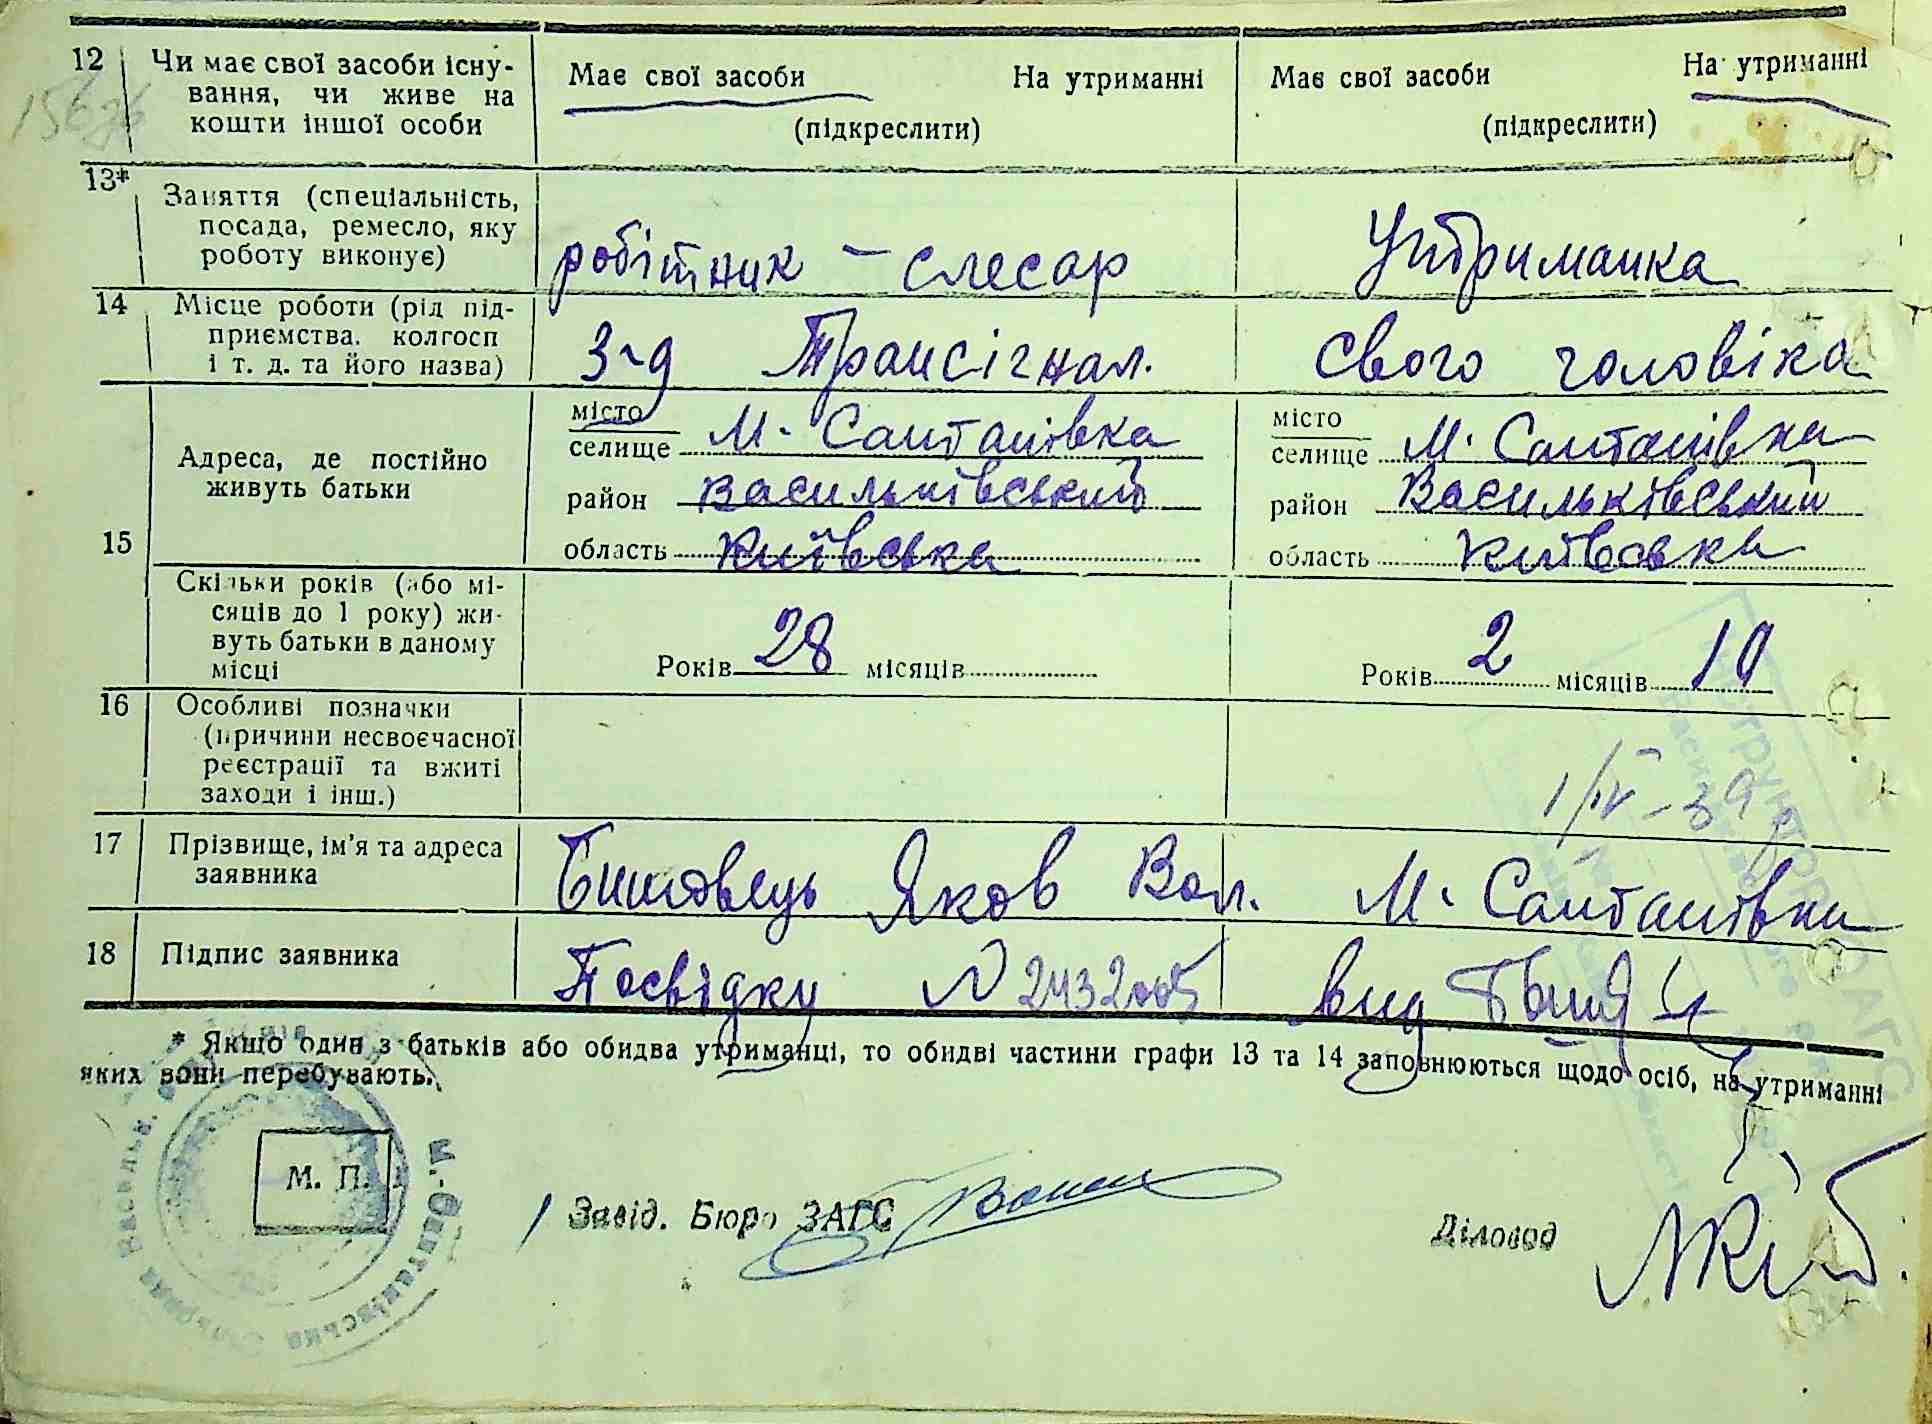 12 Чи має свої засоби існу-
вання, чи живе на
кошти іншої особи
Має свої засоби На утриманні
(підкреслити)
Має свої засоби На утриманні
(підкреслити)
13* Заняття (спеціальність,
посада, ремесло, яку
роботу виконує)
робітник – слесар
Утриманка
14 Місце роботи (рід під-
приємства, колгосп
і т. д. та його назва)
З-д Трансігнал.
свого чоловіка
15
Адреса, де постійно
живуть батьки
місто
селище М. Салтанівка
район Васильківський
область Київська
місто
селище М. Салтанівка
район Васильківський
область Київська
Скільки років (або мі-
сяців до 1 року) жи-
вуть батьки в даному
місці
Років 28 місяців
Років 2 місяців 10
16 Особливі позначки
(причини несвоєчасної
реєстрації та вжиті
заходи і інш.)
1/IV-39
17 Прізвище, ім'я та адреса
заявника
Яков Вол. М. Салтанівка
18 Підпис заявника
Посвідку N
* Якщо один з батьків або обидва утриманці, то обидві частини графи 13 та 14 заповнюються щодо осіб, на утриманні
яких вони перебувають.
М. П.
Завід. Бюро ЗАГС
Діловод